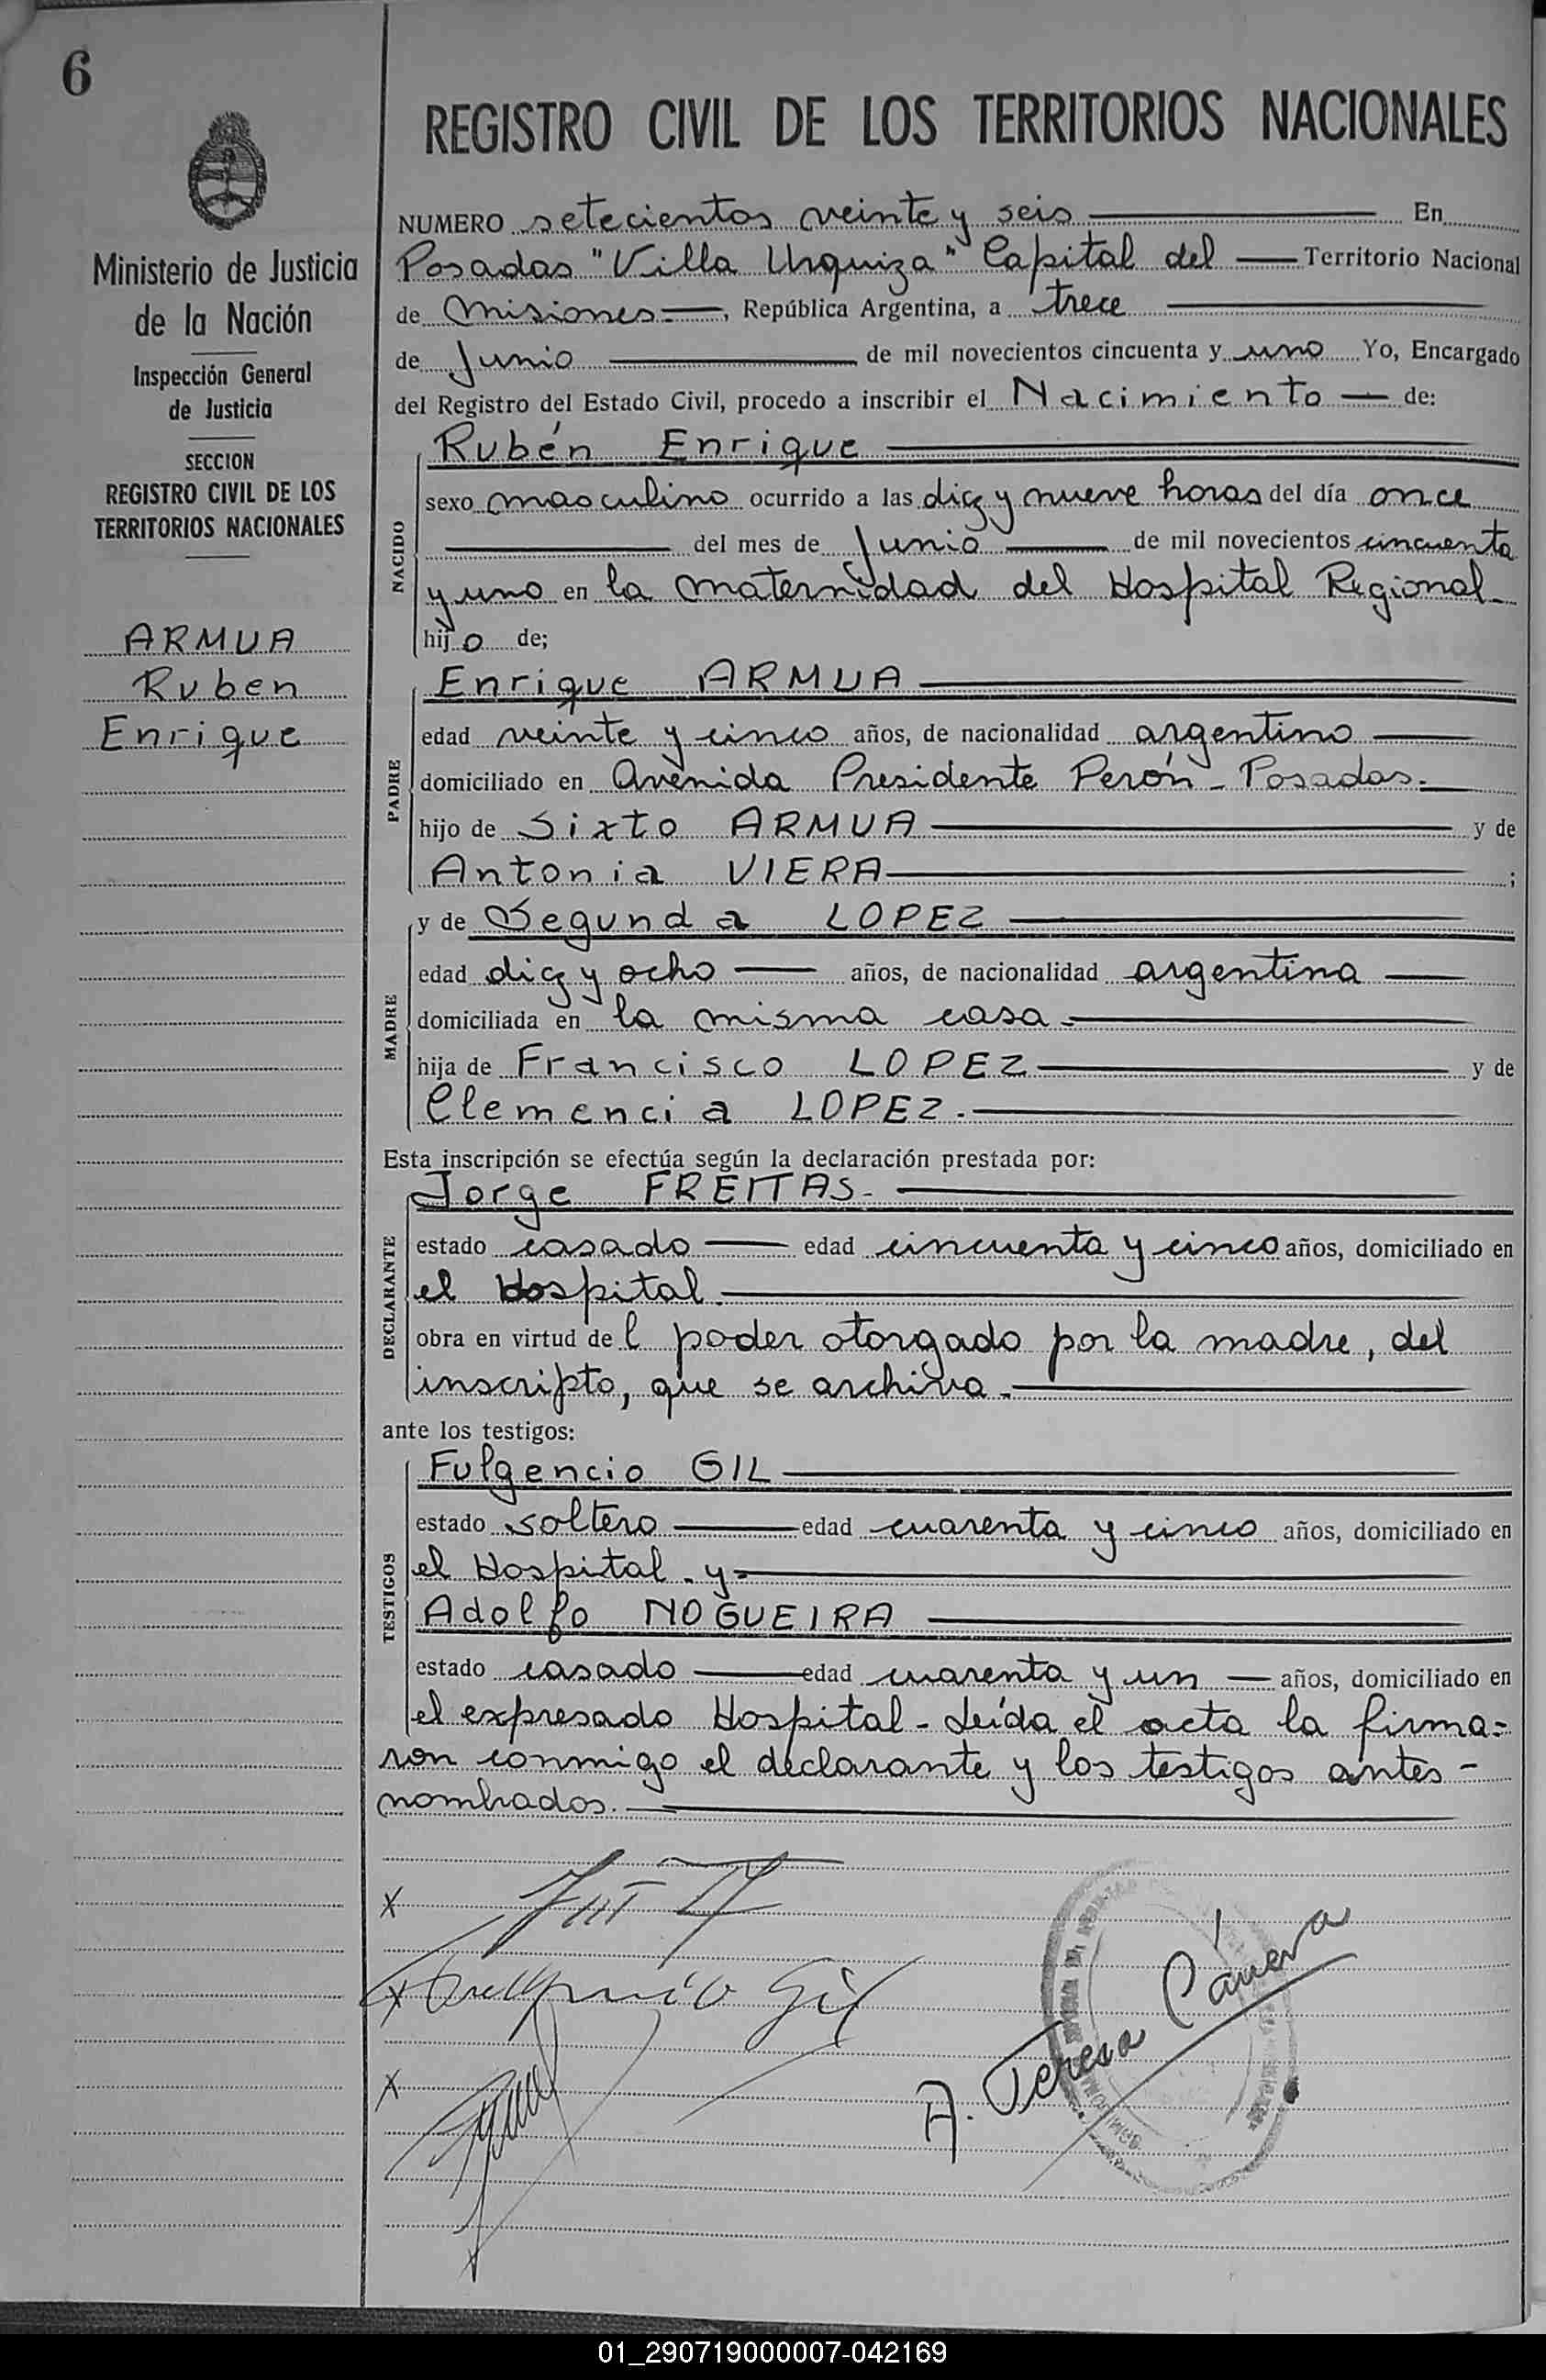 6
REGISTRO CIVIL DE LOS TERRITORIOS NACIONALES
Ministerio de Justicia
de la Nación
Inspección General
de Justicia
SECCION
REGISTRO CIVIL DE LOS
TERRITORIOS NACIONALES
ARMUA
Ruben
Enrique
NUMERO setecientos veinte y seis En
Posadas "Villa Urquiza" Capital del Territorio Nacional
de Misiones.-, República Argentina, a trece
de Junio de mil novecientos cincuenta y uno Yo, Encargado
del Registro del Estado Civil, procedo a inscribir el Nacimiento de:
NACIDO
Rubén Enrique
sexo masculino ocurrido a las diez y nueve horas del día once
del mes de Junio de mil novecientos cincuenta
y uno en la maternidad del Hospital Regional-
hijo de;
PADRE
Enrique ARMUA
edad veinte y cinco años, de nacionalidad argentino
domiciliado en Avenida Presidente Perón - Posadas.-
hijo de Sixto ARMUA y de
Antonia VIERA ;
MADRE
y de Segunda LOPEZ
edad diez y ocho años, de nacionalidad argentina
domiciliada en la misma casa.-
hija de Francisco LOPEZ y de
Clemencia LOPEZ.-
Esta inscripción se efectúa según la declaración prestada por:
DECLARANTE
Jorge FREITAS.-
estado casado edad cincuenta y cinco años, domiciliado en
el Hospital.-
obra en virtud del poder otorgado por la madre, del
inscripto, que se archiva.-
ante los testigos:
TESTIGOS
Fulgencio GIL
estado soltero edad cuarenta y cinco años, domiciliado en
el Hospital. y-
Adolfo NOGUEIRA
estado casado edad cuarenta y un años, domiciliado en
el expresado Hospital - Leída el acta la firma=
ron conmigo el declarante y los testigos antes-
nombrados.
x
x Fulgencio Gil
x
A. Teresa
01_290719000007-042169